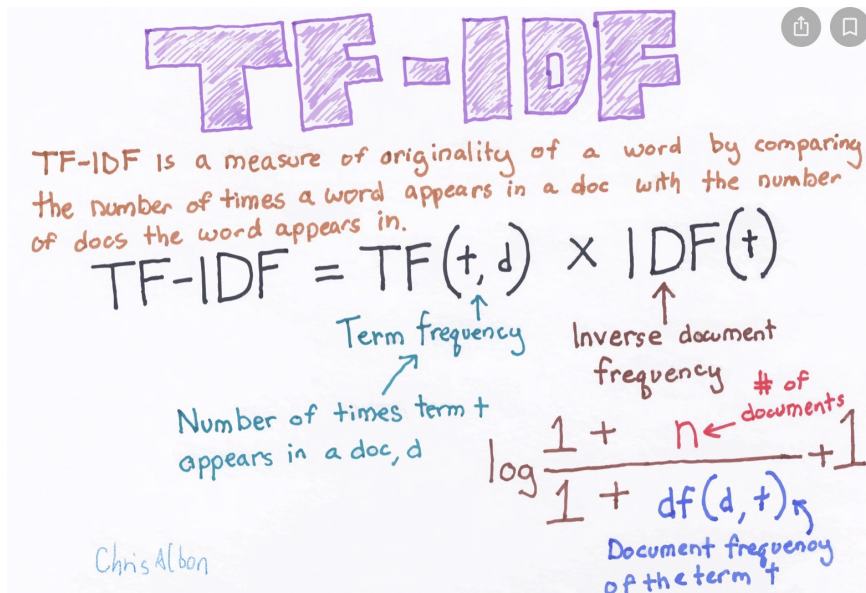 TF-IDF
TF-IDF is a measure of originality of a word by comparing
the number of times a word appears in a doc with the number
of docs the word appears in.
TF-IDF = TF(t, d) × IDF(t)
Term frequency
Inverse document
frequency
Number of times term t
appears in a doc, d
# of
documents
log 1 + n / 1 + df(d, t) + 1
Document frequency
of the term t
Chris Albon